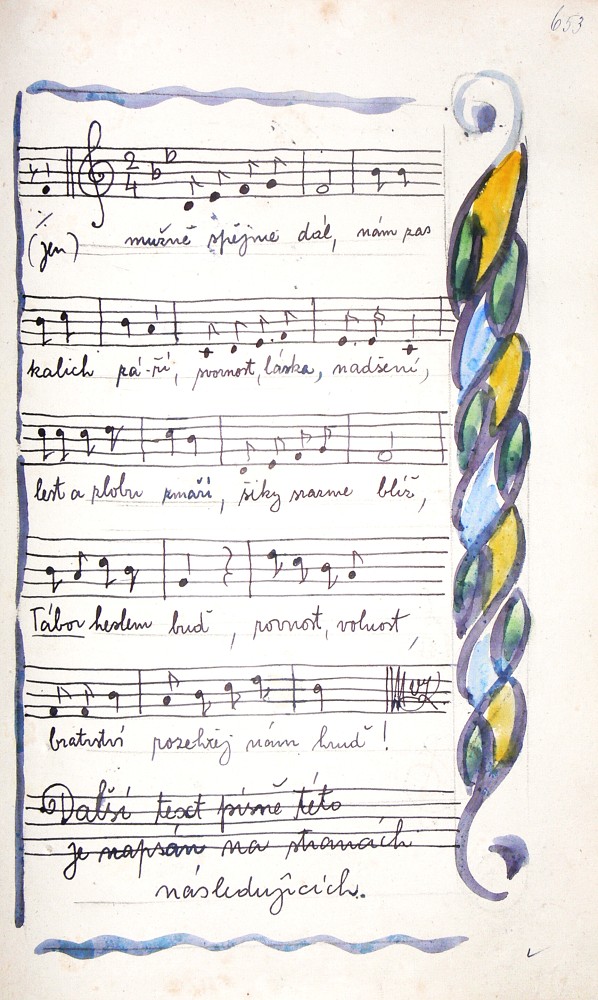 653
2
4
(jen) mužně spějme dál, nám zas
kalich zá-ří, svornost, láska, nadšení,
lest a zlobu zmaří, šiky srazme blíž,
Tábor heslem buď, rovnost, volnost,
bratrství rozehřej nám hruď!
Další text písně této
je napsán na stranách
následujících.